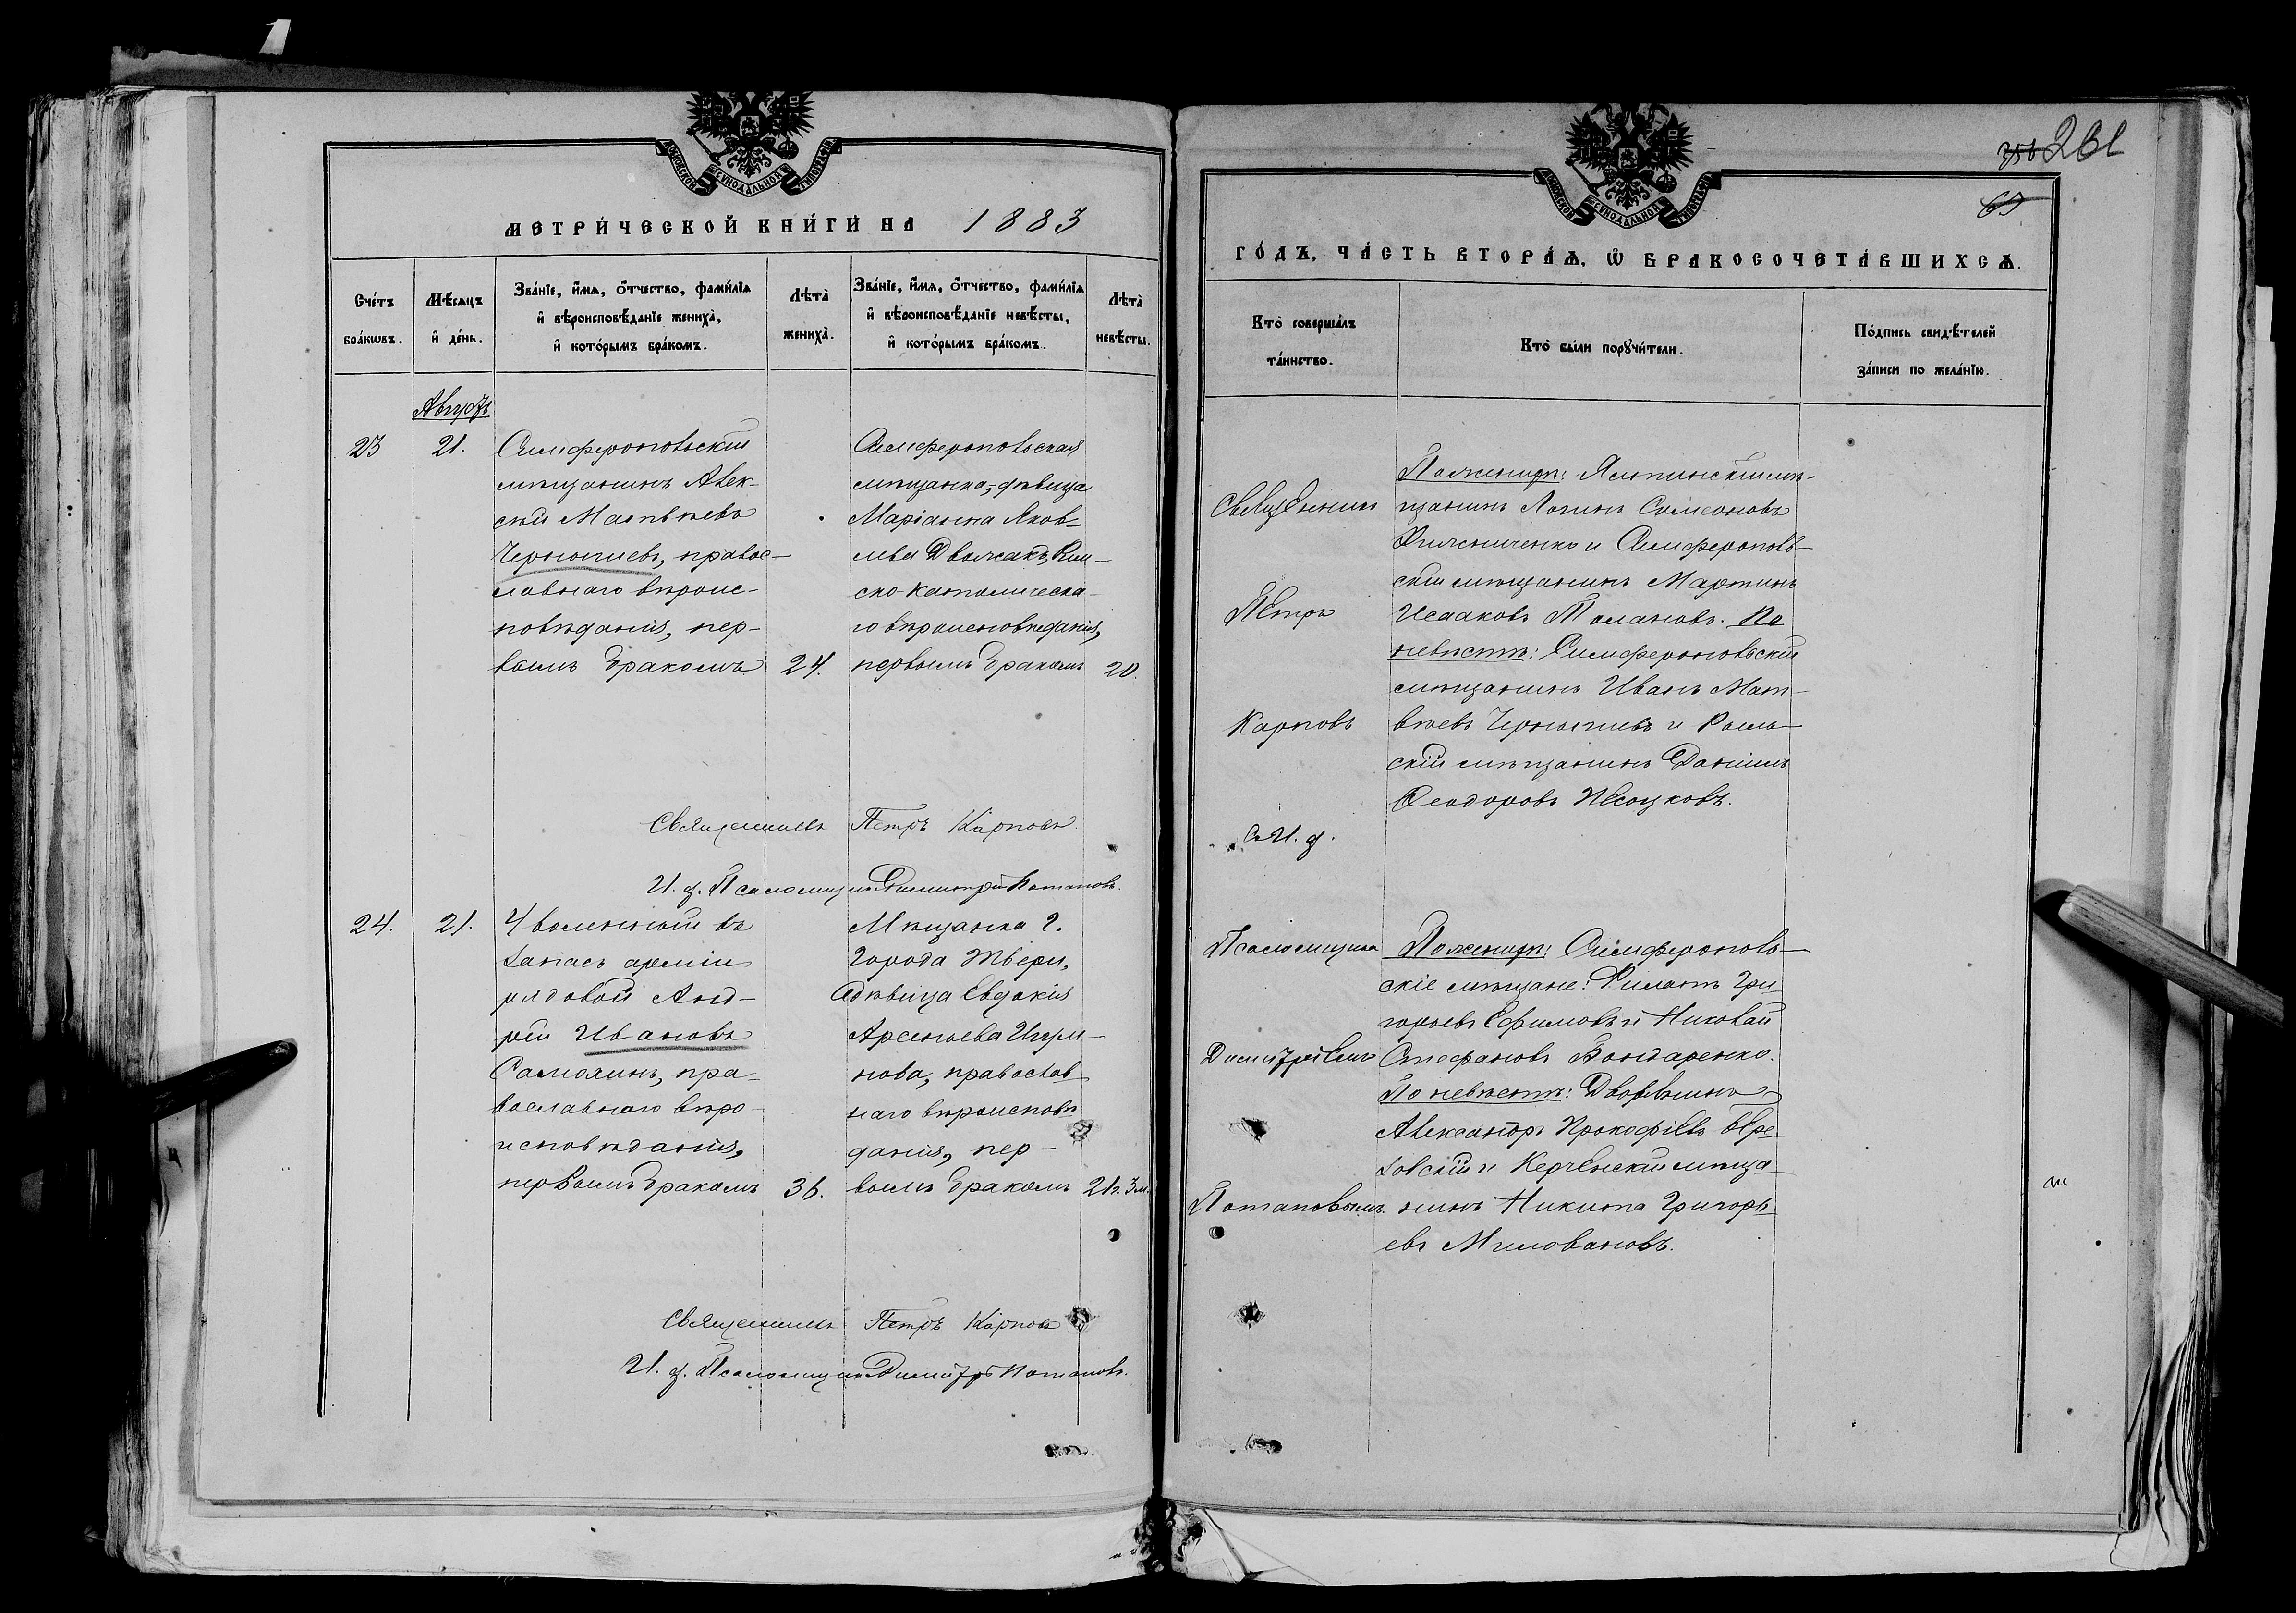 МЕТРИЧЕСКОЙ КНИГИ НА 1883
Счетъ браковъ.
Мѣсяцъ и день.
Званіе, имя, отчество, фамилія и вѣроисповѣданіе жениха, и которымъ бракомъ.
Лѣта жениха.
Званіе, имя, отчество, фамилія и вѣроисповѣданіе невѣсты, и которымъ бракомъ.
Лѣта невѣсты.
Августъ
23
21.
Симферопольскій
мѣщанинъ Алек-
сѣй Матвѣевъ
Чернышевъ, правос-
лавнаго вѣроис-
повѣданія, пер-
вымъ бракомъ
24.
Симферопольская
мѣщанка, дѣвица
Маріанна Яков-
лева Дворжакъ, Рим-
ско-католическа-
го вѣроисповѣданія,
первымъ бракомъ
20.
Священникъ Петръ Карповъ
И. д. Псаломщика Димитрій Потаповъ.
24.
21.
Уволенный въ
запасъ арміи
рядовой Анд-
рей Ивановъ
Самохинъ, пра-
вославнаго вѣро-
исповѣданія,
первымъ бракомъ
36.
Мѣщанка г.
города Твери,
дѣвица Евдокія
Арсеньева
нова, православ-
наго вѣроисповѣ-
данія, пер-
вымъ бракомъ
21 г. 3 м.
Священникъ Петръ Карповъ
И. д. Псаломщика Димитрій Потаповъ.
261
69
ГОДЪ, ЧАСТЬ ВТОРАЯ, Ѡ БРАКОСОЧЕТАВШИХСЯ.
Кто совершалъ таинство.
Кто были поручители.
Подпись свидѣтелей записи по желанію.
Священникъ
Петръ
Карповъ
съ И. д.
Псаломщика
Димитріемъ
Потаповымъ.
По женихѣ: Ялтинскій мѣ-
щанинъ Логинъ Симеоновъ
и Симферополь-
скій мѣщанинъ Мартинъ
Исааковъ Толановъ. По
невѣстѣ: Симферопольскій
мѣщанинъ Иванъ Мат-
вѣевъ Чернышевъ и Рыль-
скій мѣщанинъ Даніилъ
Ѳеодоровъ
По женихѣ: Симферополь-
скіе мѣщане: Филатъ Гри-
горьевъ Ефимовъ и Николай
Стефановъ Бондаренко.
По невѣстѣ: Дворянинъ
Александръ Прокофіевъ Бре-
зовскій и Керченскій мѣща-
нинъ Никита Григорь-
евъ Миловановъ.